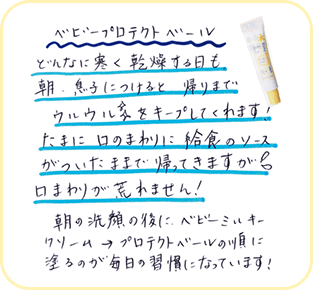 ベビープロテクトベール
どんなに寒く乾燥する日も、
朝、息子につけると帰りまで
ウルウル💦をキープしてくれます!
たまに口のまわりに給食のソース
がついたままで帰ってきますが
口まわりが荒れません!
朝の洗顔の後に、ベビーミルキー
クリーム→プロテクトベールの順に
塗るのが毎日の習慣になっています!